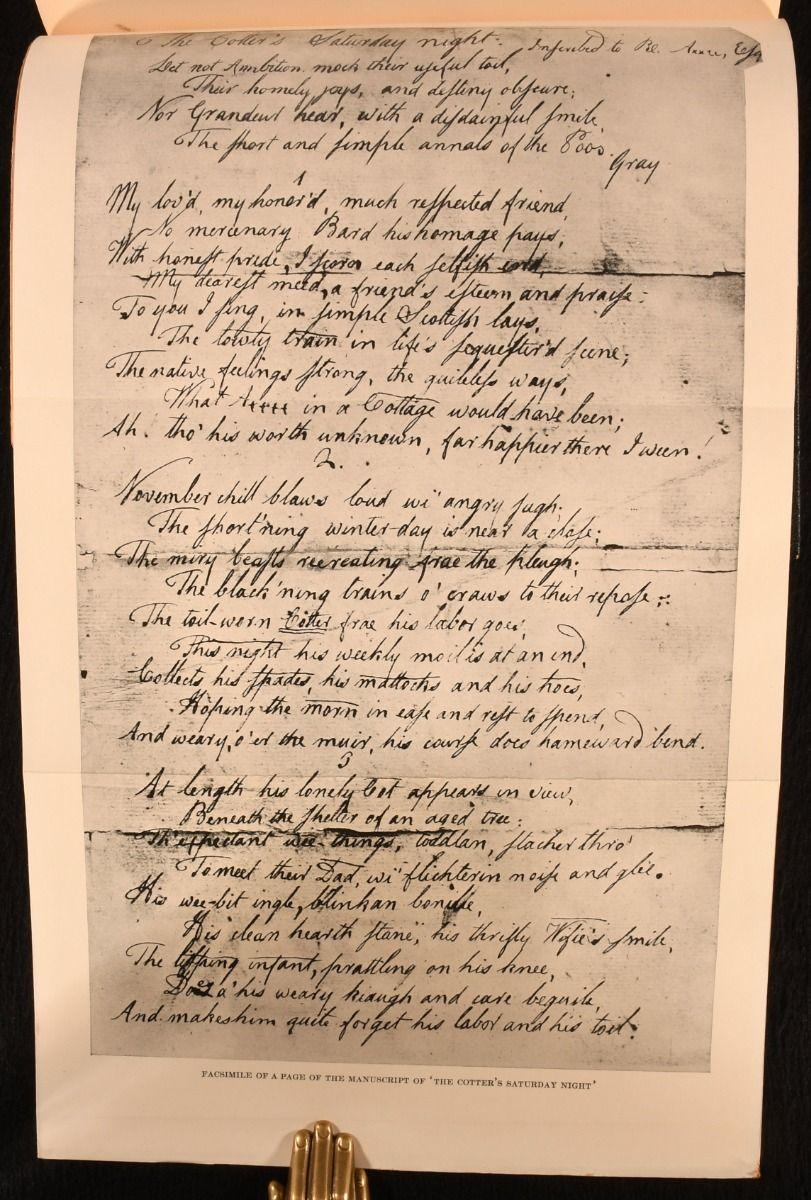 The Cotter's Saturday night. Inscribed to R. A****, Esq
Let not Ambition mock their useful toil,
Their homely joys, and destiny obscure;
Nor Grandeur hear, with a disdainful smile,
The short and simple annals of the Poor.
Gray
1
My lov'd, my honor'd, much respected friend,
No mercenary Bard his homage pays;
With honest pride, I scorn each selfish end,
My dearest meed, a friend's esteem and praise:
To you I sing, in simple Scottish lays,
The lowly train in life's sequester'd scene;
The native feelings strong, the guileless ways,
What A**** in a Cottage would have been;
Ah! tho' his worth unknown, far happier there I ween!
2.
November chill blaws loud wi' angry sugh;
The short'ning winter-day is near a close;
The miry beasts retreating frae the pleugh;
The black'ning trains o' craws to their repose:
The toil-worn Cotter frae his labor goes,
This night his weekly moil is at an end,
Collects his spades, his mattocks and his hoes,
Hoping the morn in ease and rest to spend,
And weary, o'er the muir, his course does hameward bend.
3
At length his lonely Cot appears in view,
Beneath the shelter of an aged tree:
Th' expectant wee-things, toddlan, stacher thro'
To meet their Dad, wi' flichterin noise and glee.
His wee-bit ingle, blinkan bonilie,
His clean hearth stane, his thrifty Wifie's smile,
The lisping infant, prattling on his knee,
Does a' his weary kiaugh and care beguile,
And makes him quite forget his labor and his toil.
FACSIMILE OF A PAGE OF THE MANUSCRIPT OF 'THE COTTER'S SATURDAY NIGHT'